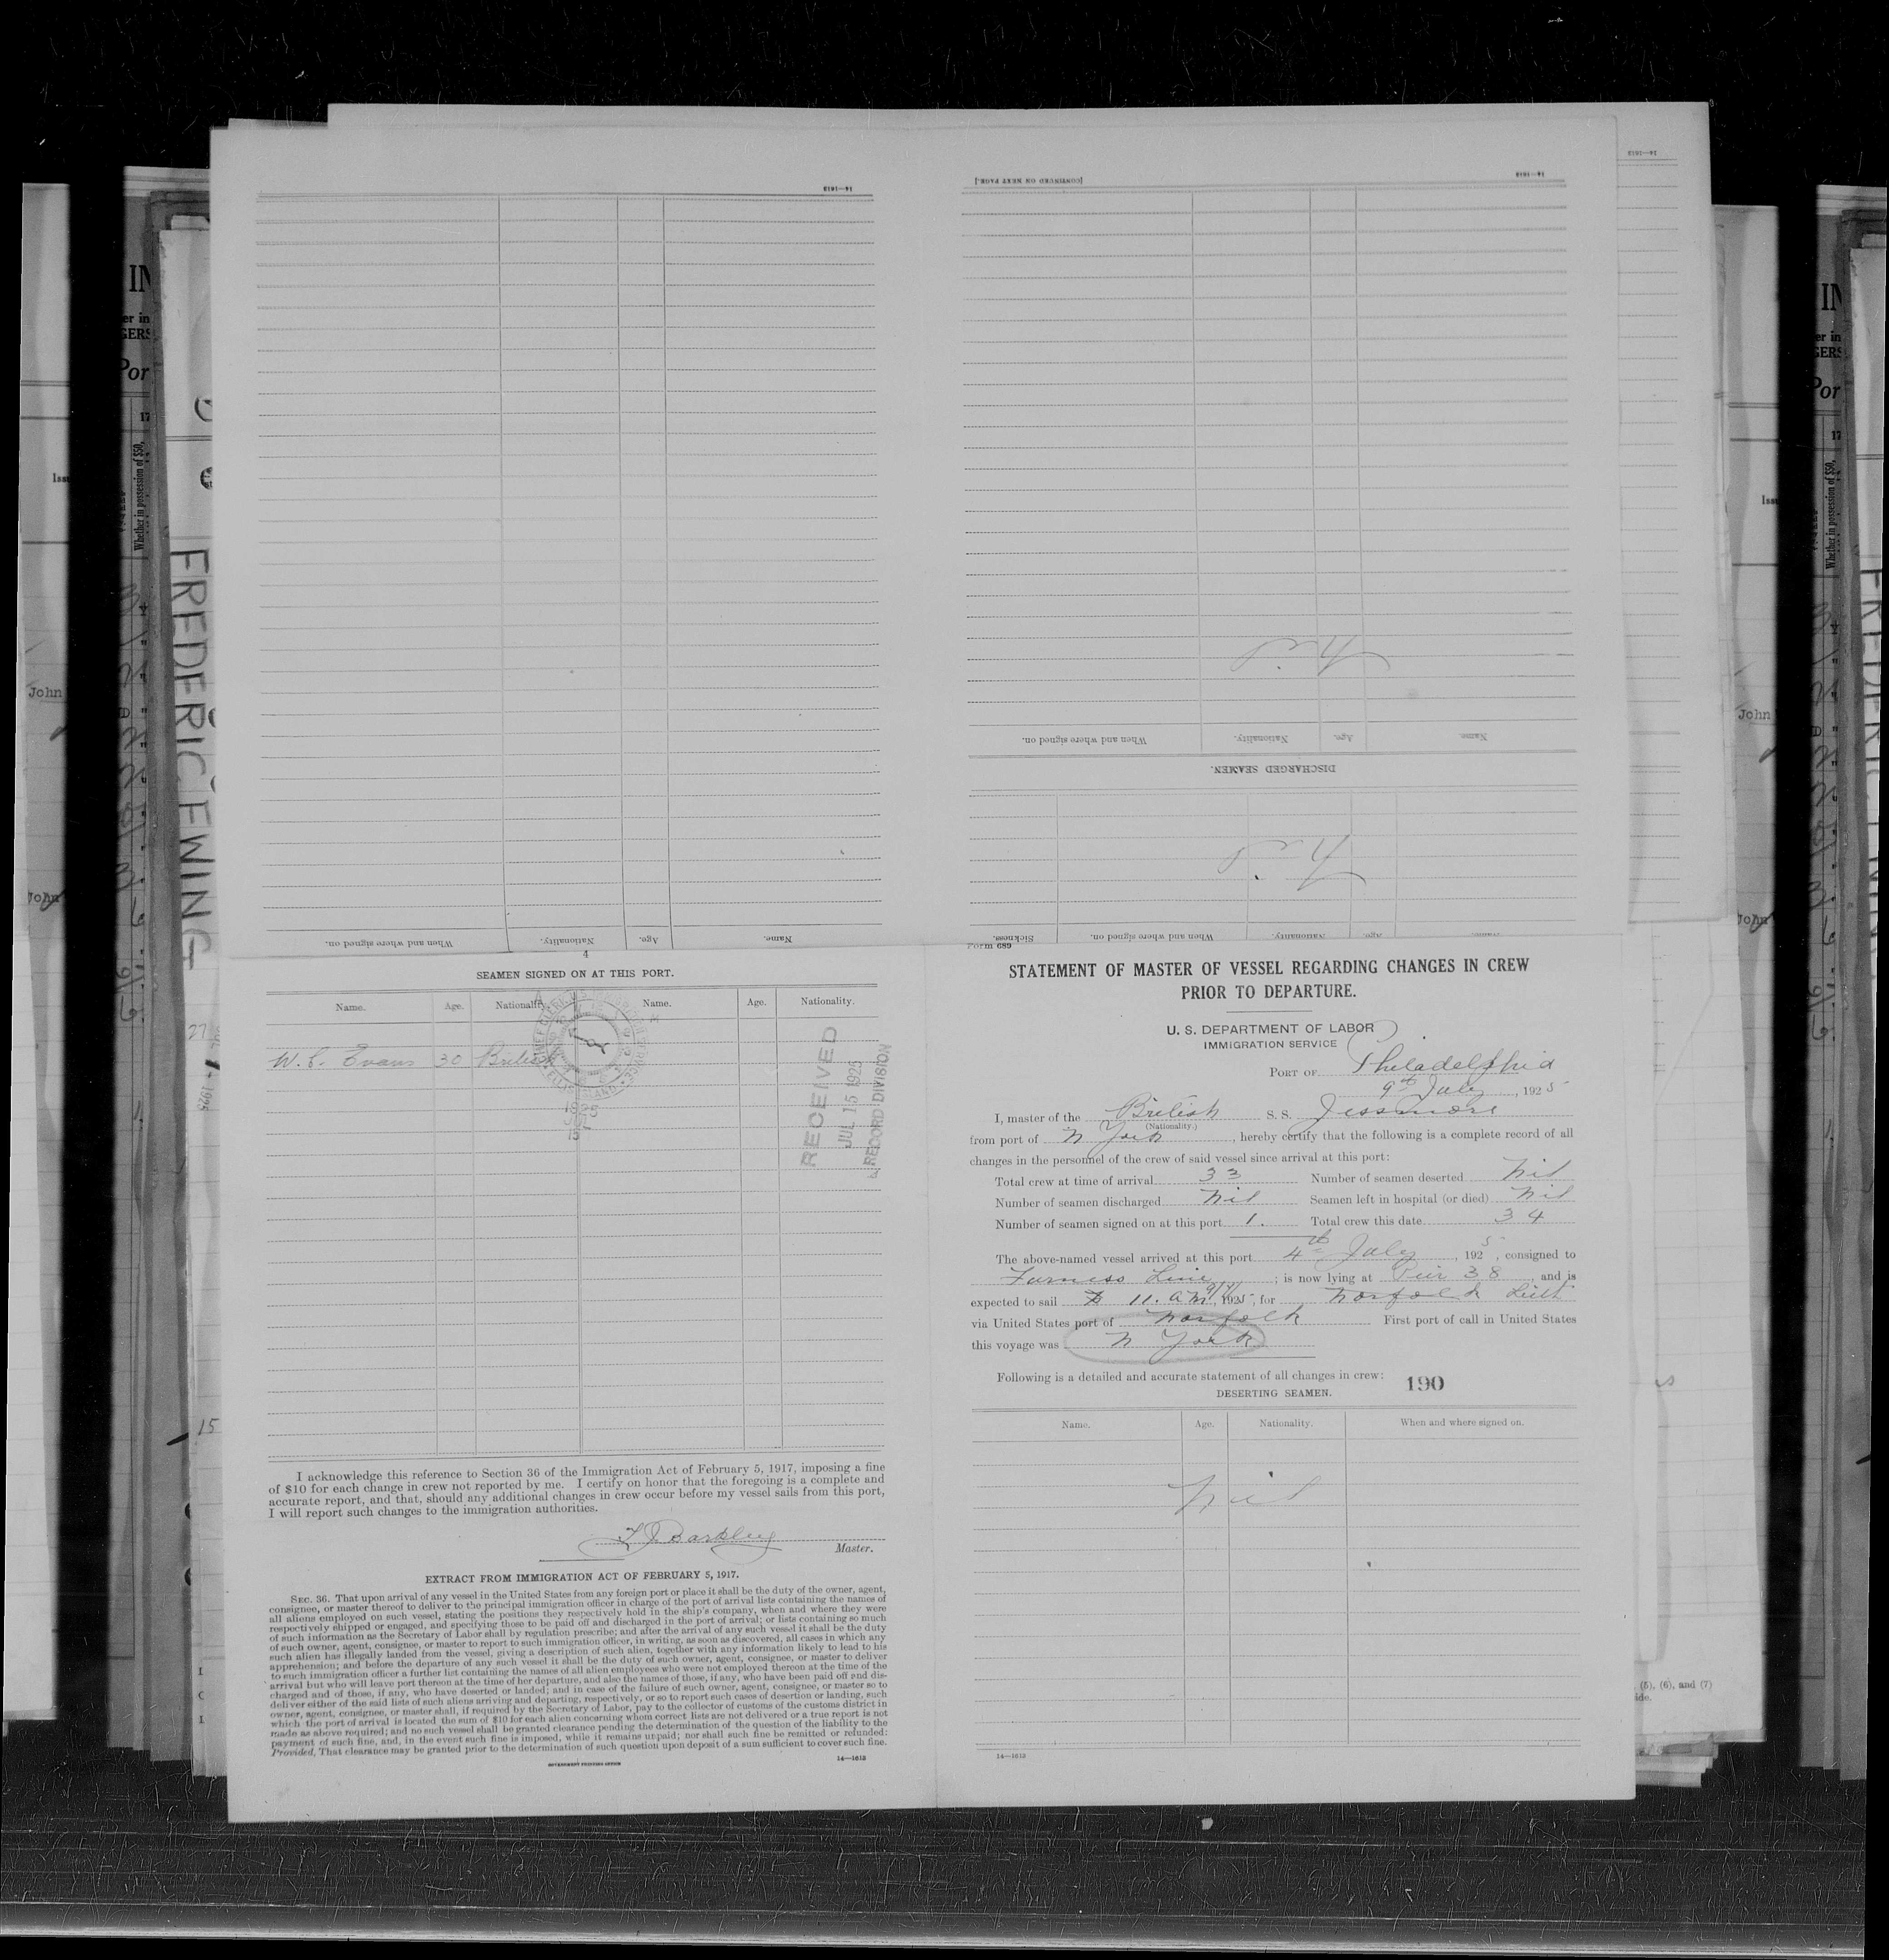 14—1613
[CONTINUED ON NEXT PAGE.]
14—1613
When and where signed on. Nationality. Age. Name.
DISCHARGED SEAMEN.
When and where signed on. Nationality. Age. Name.
Sickness. When and where signed on. Nationality. Age. Name.
4
SEAMEN SIGNED ON AT THIS PORT.
Name. Age. Nationality. Name. Age. Nationality.
W. E. Evans 30 British
RECEIVED
JUL 15 1925
RECORD DIVISION
I acknowledge this reference to Section 36 of the Immigration Act of February 5, 1917, imposing a fine
of $10 for each change in crew not reported by me. I certify on honor that the foregoing is a complete and
accurate report, and that, should any additional changes in crew occur before my vessel sails from this port,
I will report such changes to the immigration authorities.
Master.
EXTRACT FROM IMMIGRATION ACT OF FEBRUARY 5, 1917.
SEC. 36. That upon arrival of any vessel in the United States from any foreign port or place it shall be the duty of the owner, agent,
consignee, or master thereof to deliver to the principal immigration officer in charge of the port of arrival lists containing the names of
all aliens employed on such vessel, stating the positions they respectively hold in the ship's company, when and where they were
respectively shipped or engaged, and specifying those to be paid off and discharged in the port of arrival; or lists containing so much
of such information as the Secretary of Labor shall by regulation prescribe; and after the arrival of any such vessel it shall be the duty
of such owner, agent, consignee, or master to report to such immigration officer, in writing, as soon as discovered, all cases in which any
such alien has illegally landed from the vessel, giving a description of such alien, together with any information likely to lead to his
apprehension; and before the departure of any such vessel it shall be the duty of such owner, agent, consignee, or master to deliver
to such immigration officer a further list containing the names of all alien employees who were not employed thereon at the time of the
arrival but who will leave port thereon at the time of her departure, and also the names of those, if any, who have been paid off and dis-
charged and of those, if any, who have deserted or landed; and in case of the failure of such owner, agent, consignee, or master so to
deliver either of the said lists of such aliens arriving and departing, respectively, or so to report such cases of desertion or landing, such
owner, agent, consignee, or master shall, if required by the Secretary of Labor, pay to the collector of customs of the customs district in
which the port of arrival is located the sum of $10 for each alien concerning whom correct lists are not delivered or a true report is not
made as above required; and no such vessel shall be granted clearance pending the determination of the question of the liability to the
payment of such fine, and, in the event such fine is imposed, while it remains unpaid; nor shall such fine be remitted or refunded:
Provided, That clearance may be granted prior to the determination of such question upon deposit of a sum sufficient to cover such fine.
GOVERNMENT PRINTING OFFICE
14—1613
Form 689
STATEMENT OF MASTER OF VESSEL REGARDING CHANGES IN CREW
PRIOR TO DEPARTURE.
U. S. DEPARTMENT OF LABOR
IMMIGRATION SERVICE
PORT OF Philadelphia
9th July, 1925
I, master of the British S. S. Jessmore
(Nationality.)
from port of N York, hereby certify that the following is a complete record of all
changes in the personnel of the crew of said vessel since arrival at this port:
Total crew at time of arrival 33 Number of seamen deserted Nil
Number of seamen discharged Nil Seamen left in hospital (or died) Nil
Number of seamen signed on at this port 1. Total crew this date 34
The above-named vessel arrived at this port 4th July, 1925, consigned to
Furness Line; is now lying at Pier 38, and is
expected to sail 11. AM 9/7/, 1925, for Norfolk Leith
via United States port of Norfolk First port of call in United States
this voyage was N York
Following is a detailed and accurate statement of all changes in crew: 190
DESERTING SEAMEN.
Name. Age. Nationality. When and where signed on.
Nil
14—1613
FREDERIC EWING
John
John
Whether in possession of $50,
(5), (6), and (7)